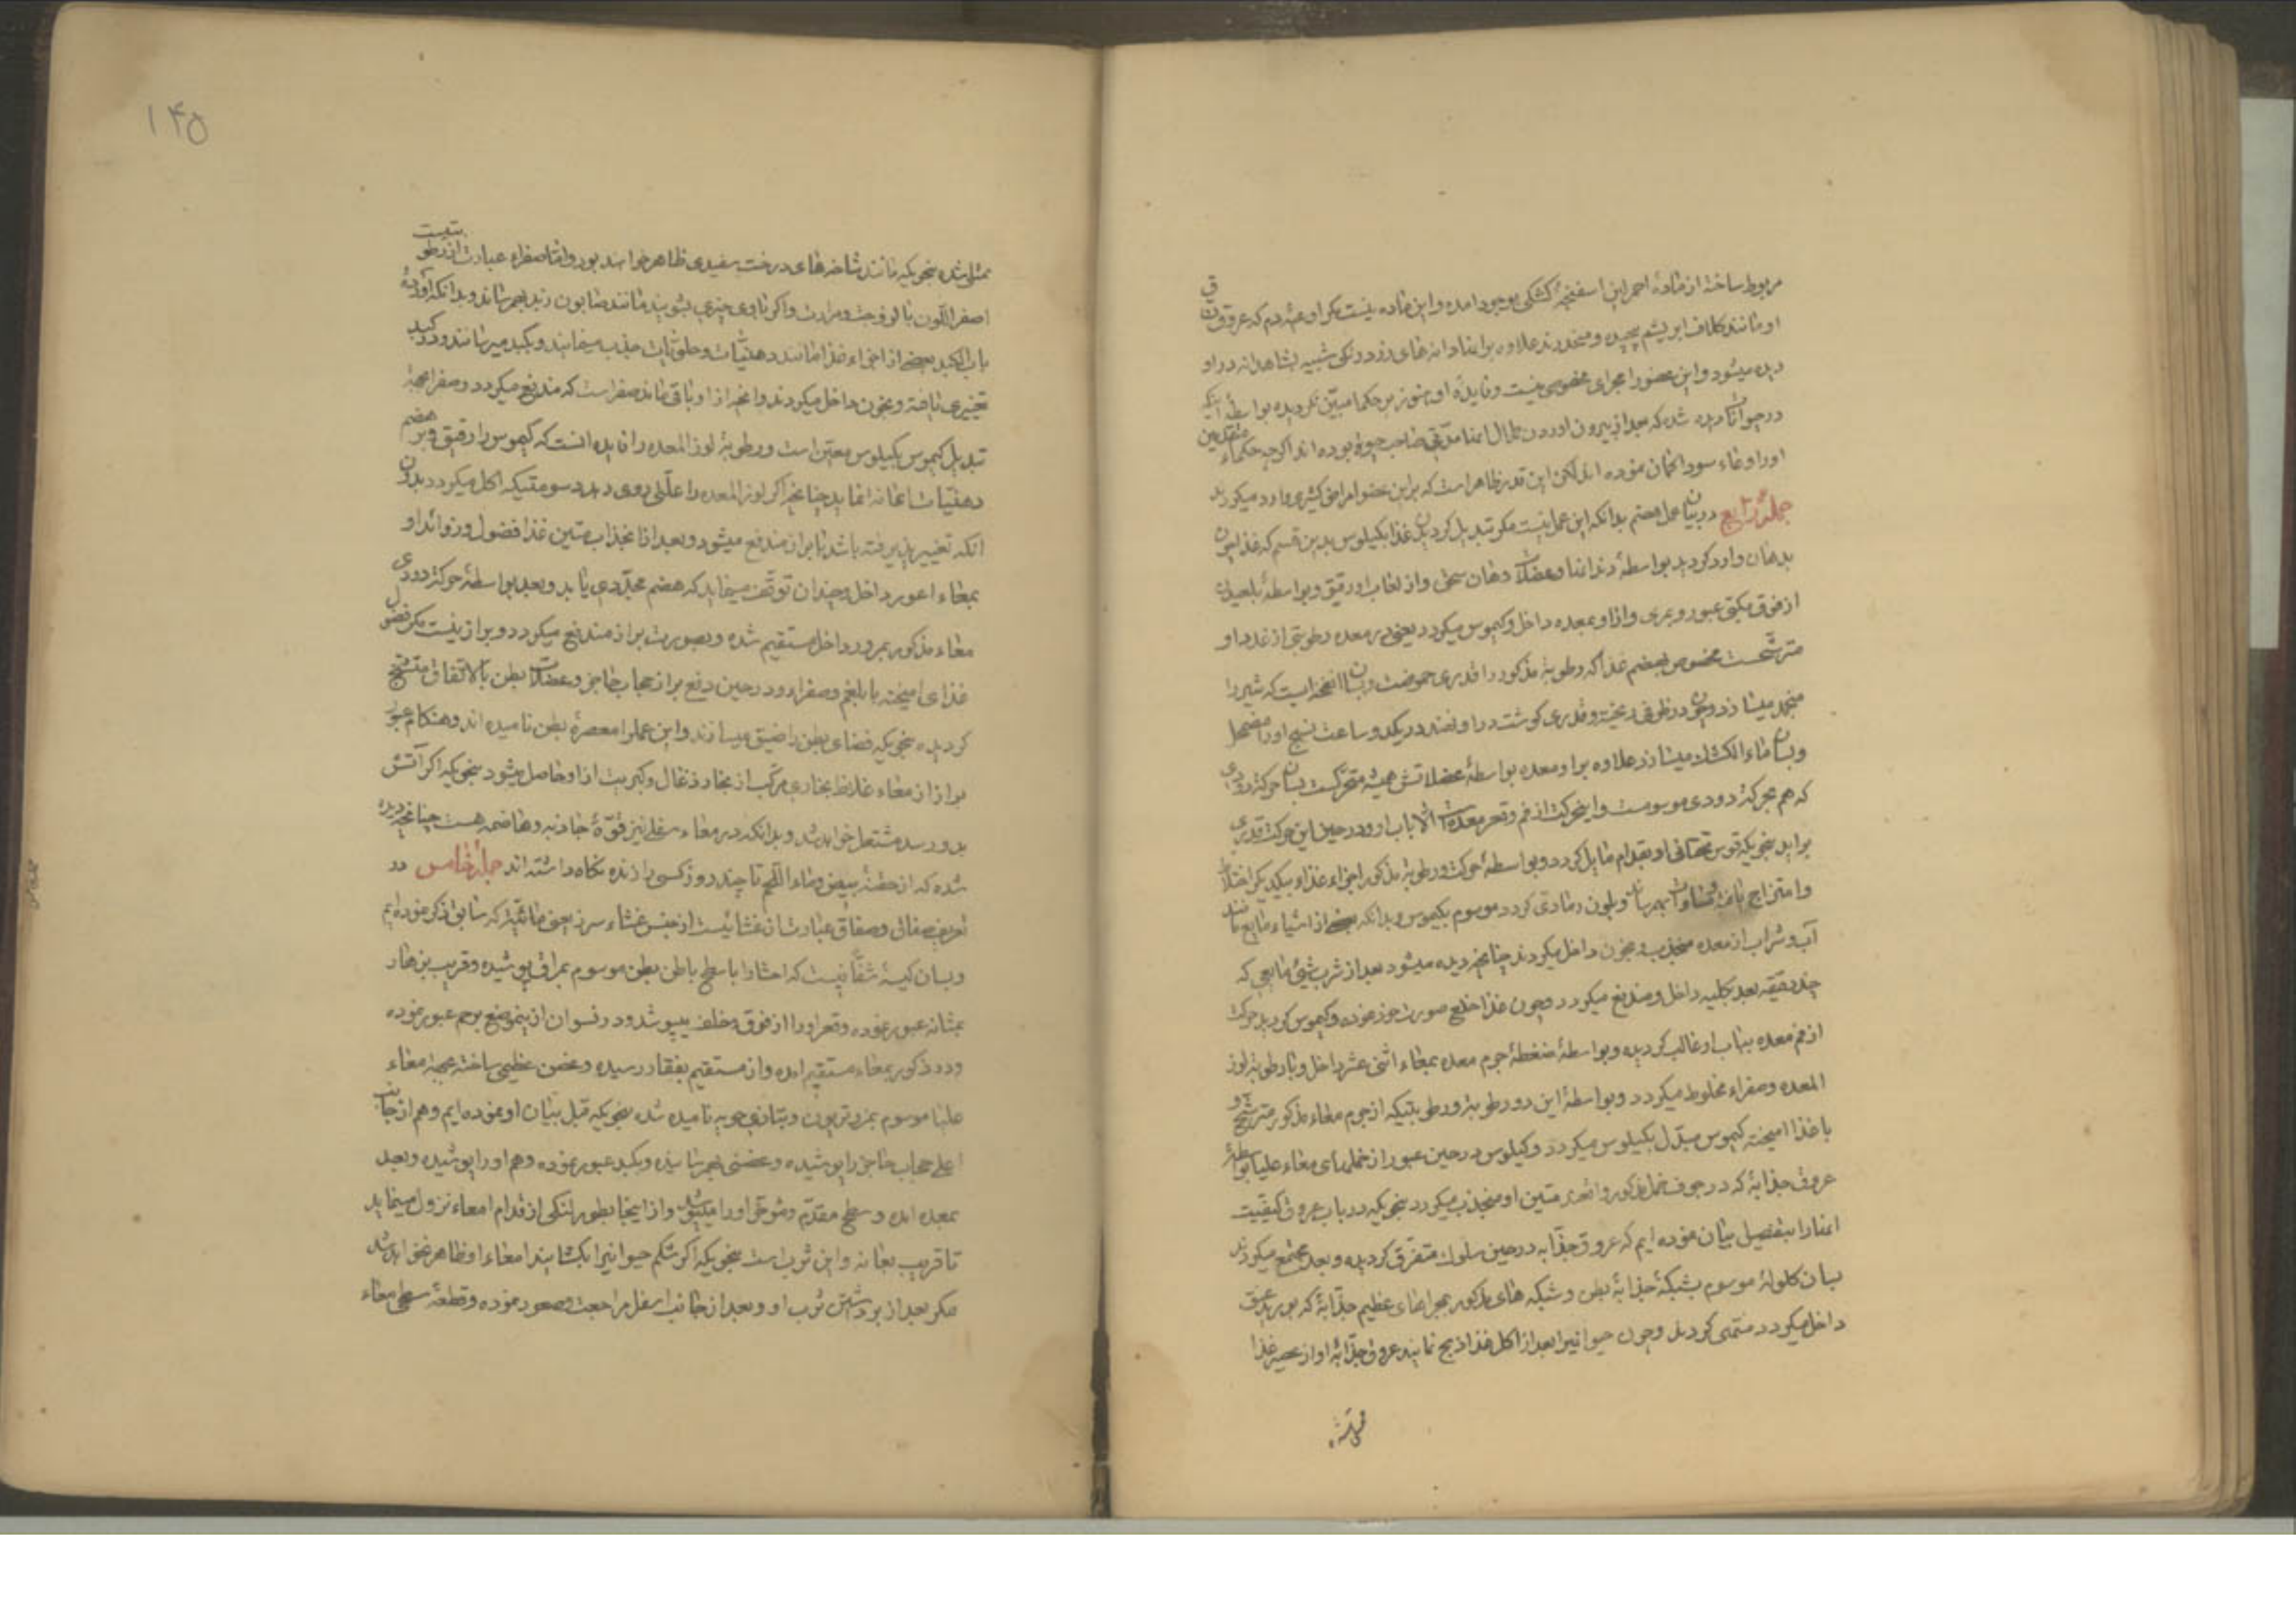 مربوط ساخته از ماده احمر این اسفنجه کشکی بوجود امده و این ماده نیست مکر اوعیه دم که عروق
او مانند کلاف ابریشم پیچیده و منحدرند علاوه براینها دانه های زرد رنکی شبیه بشاهدانه در او
دیده میشود و این عضو را مجرای مخصوصی نیست و فایده او هنوز بر حکما مبین نکردیده بواسطه اینکه
در حیوانات دیده شده که بعد از بیرون اوردن طحال انها مدتی صاحب حیوة بوده اند اکرچه حکماء متقدمین
اورا وعاء سودا کمان نموده اند لکن این قدر ظاهر است که براین عضو امراض کثیری وارد میکردند
جملهٔ رابع در بیان عمل هضم بدانکه این عمل نیست مکر تبدیل کردیدن غذا بکیلوس بدین قسم که غذا چون
بدهان وارد کردید بواسطهٔ دندانها و عضلات دهان سحق و از لعاب او رقیق و بواسطهٔ بلعیدن
از فوق مکبی عبور و بمری و از او بمعده داخل و کیموس میکردد یعنی در معده رطوبتی از غدد او
مترشحست مخصوص بهضم غذا که رطوبة مذکور را قدری حموضت و بسان انفحه ایست که شیر را
منجمد میسازد و چون در ظرفی ریخته و قدری کوشت در او نهند در یکدو ساعت نسج او را مضمحل
و بسان ماء الکشک میسازد علاوه بر او معده بواسطهٔ عضلاتش همیشه متحرکست بسان حرکة دودی
که هم بحرکة دودی موسومست و اینحرکت از فم و قعر معده است الا باب او و در حین این حرکت قدری
براید بنحویکه قوس تحتانی او بقدام مایل کردد و بواسطهٔ حرکت و رطوبة مذکور اجزاء غذا و بیکدیکر اختلاط
و امتزاج یافته بهمرساند و بلون رمادی کردد موسوم بکیموس و بدانکه بعضی از اشیاء مایع مانند
آب و شراب از معده منجذب و بخون داخل میکردند چنانچه دیده میشود بعد از شرب شیئی مایعی که
چند دقیقه بعد بکلیه داخل و مندفع میکردد و چون غذا خلع صورت خود نموده و کیموس کردید حرکت
از فم معده بباب او غالب کردیده و بواسطهٔ ضغطهٔ جرم معده بمعاء اثنی عشر داخل و با رطوبة لوز
المعده و صفراء مخلوط میکردد و بواسطهٔ این دو رطوبة و رطوبتیکه از جرم معاء مذکور مترشح و
با غذا امیخته کیموس مبدل بکیلوس میکردد و کیلوس در حین عبور از خملهای معاء علیا بواسطهٔ
عروق جذابهٔ که در جوف خمل مذکور واقعند متین او منجذب میکردد بنحویکه در باب عروق کیفیت
انها را بتفصیل بیان نموده ایم که عروق جذابه در حین سلوک متفرق کردیده و بعد مجتمع میکردند
بسان کلولهٔ موسوم بشبکهٔ جذابهٔ بطن و شبکه های مذکور بمجراهای عظیم جذابهٔ که بورید عنق
داخل میکردد منتهی کردند و چون حیوانیرا بعد از اکل غذا ذبح نمایند عروق جذابهٔ او از عصیر غذا
۱۴۵
ممتلی شده بنحویکه مانند شاخه های درخت سفیدی ظاهر خواهند بود و اما صفراء عبارت از رطوبتیست
اصفر اللون با لزوجت و مرارت و اکر با وی چیزی بشویند مانند صابون زبد بهمرساند و بدانکه آوردهٔ
باب الکبد بعضی از اجزاء غذا مانند دهنیات و حلویات جذب مینمایند و بکبد میرسانند و در کبد
تغییری یافته و بخون داخل میکردند و انچه از او باقی ماند صفراست که مندفع میکردد و صفرا بجهة
تبدیل کیموس بکیلوس معین است و رطوبة لوز المعده را فایده انست که کیموس را رقیق و بر هضم
دهنیات اعانه نماید چنانچه اکر لوز المعده را علتی روی دهد دسومتیکه اکل میکردد بدون
انکه تغییر پذیرفته باشد با براز مندفع میشود و بعد از انجذاب متین غذا فضول و زوائد او
بمعاء اعور داخل و چندان توقف مینماید که هضم مجددی یابد و بعد بواسطهٔ حرکة دودی
معاء مذکور بمرور داخل مستقیم شده و بصورت براز مندفع میکردد و براز نیست مکر فضول
غذای امیخته با بلغم و صفراء و در حین دفع براز حجاب حاجز و عضلات بطن بالاتفاق متشنج
کردیده بنحویکه فضای بطن را ضیق میسازند و این عمل را معصرهٔ بطن نامیده اند و هنکام عبور
براز از معاء غلاظ بخاری مرکب از بخار ذغال و کبریت از او حاصل میشود بنحویکه اکر آتش
بدو رسد مشتعل خواهد شد و بدانکه در معاء سفلی نیز قوهٔ جاذبه و هاضمه هست چنانچه دیده
شده که از حقنهٔ بیض و ماء اللحم تا چند روز کسی را زنده نکاه داشته اند جملهٔ خامس در
تعریف صفاق و صفاق عبارت از غشائیست از جنس غشاء سرز یعنی مائیه که سابق ذکر نموده ایم
و بسان کیسهٔ شفافیست که احشا را با سطح باطن بطن موسوم بمراق پوشیده و قریب بزهار
بمثانه عبور نموده و قعر او را از فوق و خلف میپوشد و در نسوان از اینموضع برحم عبور نموده
و در ذکور بمعاء مستقیم امده و از مستقیم بفقار رسیده و غضن عظیمی ساخته بجهة معاء
علیا موسوم بمزنتریون و بتازی حویه نامیده شده بنحویکه قبل بیان او نموده ایم و هم از جانب
اعلی حجاب حاجز را پوشیده و غضنی بهمرسانیده و بکبد عبور نموده و هم او را پوشیده و بعد
بمعده امده و سطح مقدم و مؤخر او را میپوشد و از اینجا بطور لنکی از قدام امعاء نزول مینماید
تا قریب بعانه و این ثرب است بنحویکه اکر شکم حیوانیرا بکشایند امعاء او ظاهر نخواهد شد
مکر بعد از برداشتن ثرب او و بعد از جانب اسفل مراجعت و صعود نموده و قطعهٔ سطحی معاء